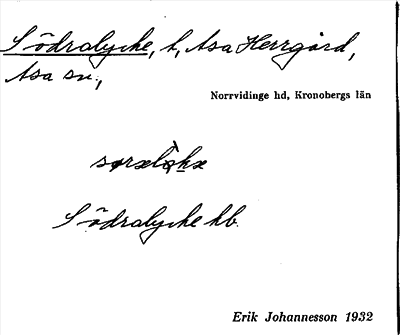 Södralycke, t, Asa Herrgård,
Asa sn.,
Norrvidinge hd, Kronobergs län
Södralycke hb.
Erik Johannesson 1932